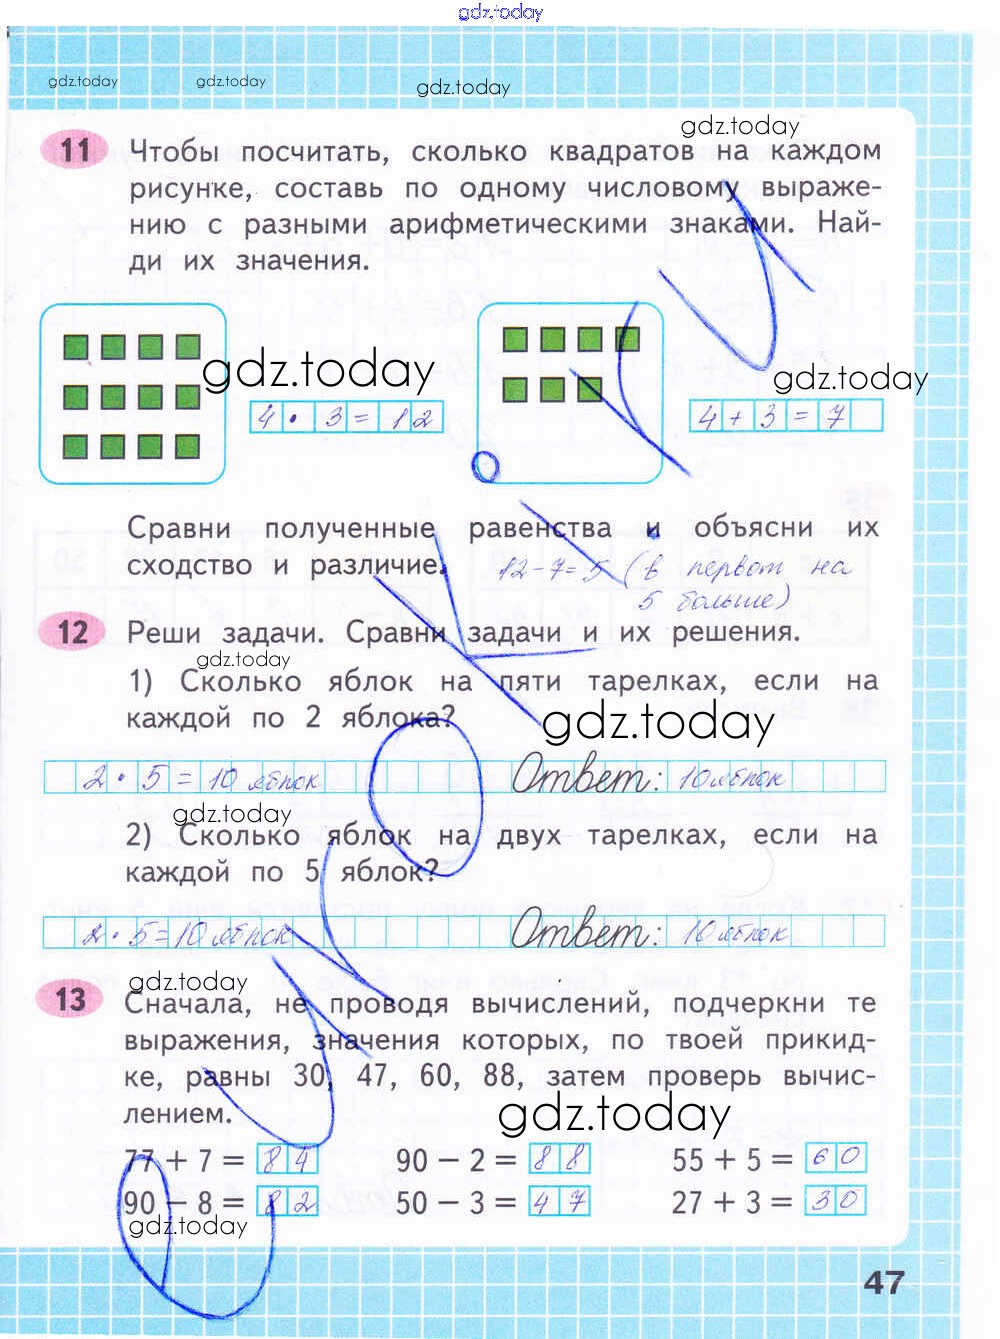 gdz.today
gdz.today gdz.today gdz.today
gdz.today
11 Чтобы посчитать, сколько квадратов на каждом
рисунке, составь по одному числовому выраже-
нию с разными арифметическими знаками. Най-
ди их значения.
gdz.today gdz.today
4 · 3 = 12 4 + 3 = 7
Сравни полученные равенства и объясни их
сходство и различие. 12 - 7 = 5 (в первом на
5 больше)
12 Реши задачи. Сравни задачи и их решения.
gdz.today
1) Сколько яблок на пяти тарелках, если на
каждой по 2 яблока?
gdz.today
2 · 5 = 10 яблок Ответ: 10 яблок
gdz.today
2) Сколько яблок на двух тарелках, если на
каждой по 5 яблок?
2 · 5 = 10 яблок Ответ: 10 яблок
gdz.today
13 Сначала, не проводя вычислений, подчеркни те
выражения, значения которых, по твоей прикид-
ке, равны 30, 47, 60, 88, затем проверь вычис-
лением.
gdz.today
77 + 7 = 84 90 − 2 = 88 55 + 5 = 60
90 − 8 = 82 50 − 3 = 47 27 + 3 = 30
gdz.today
47